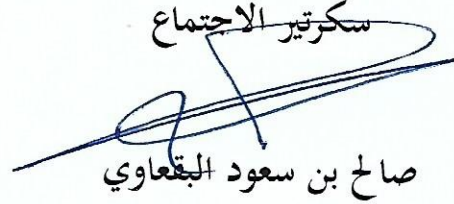 سكرتير الاجتماع
صالح بن سعود البقعاوي